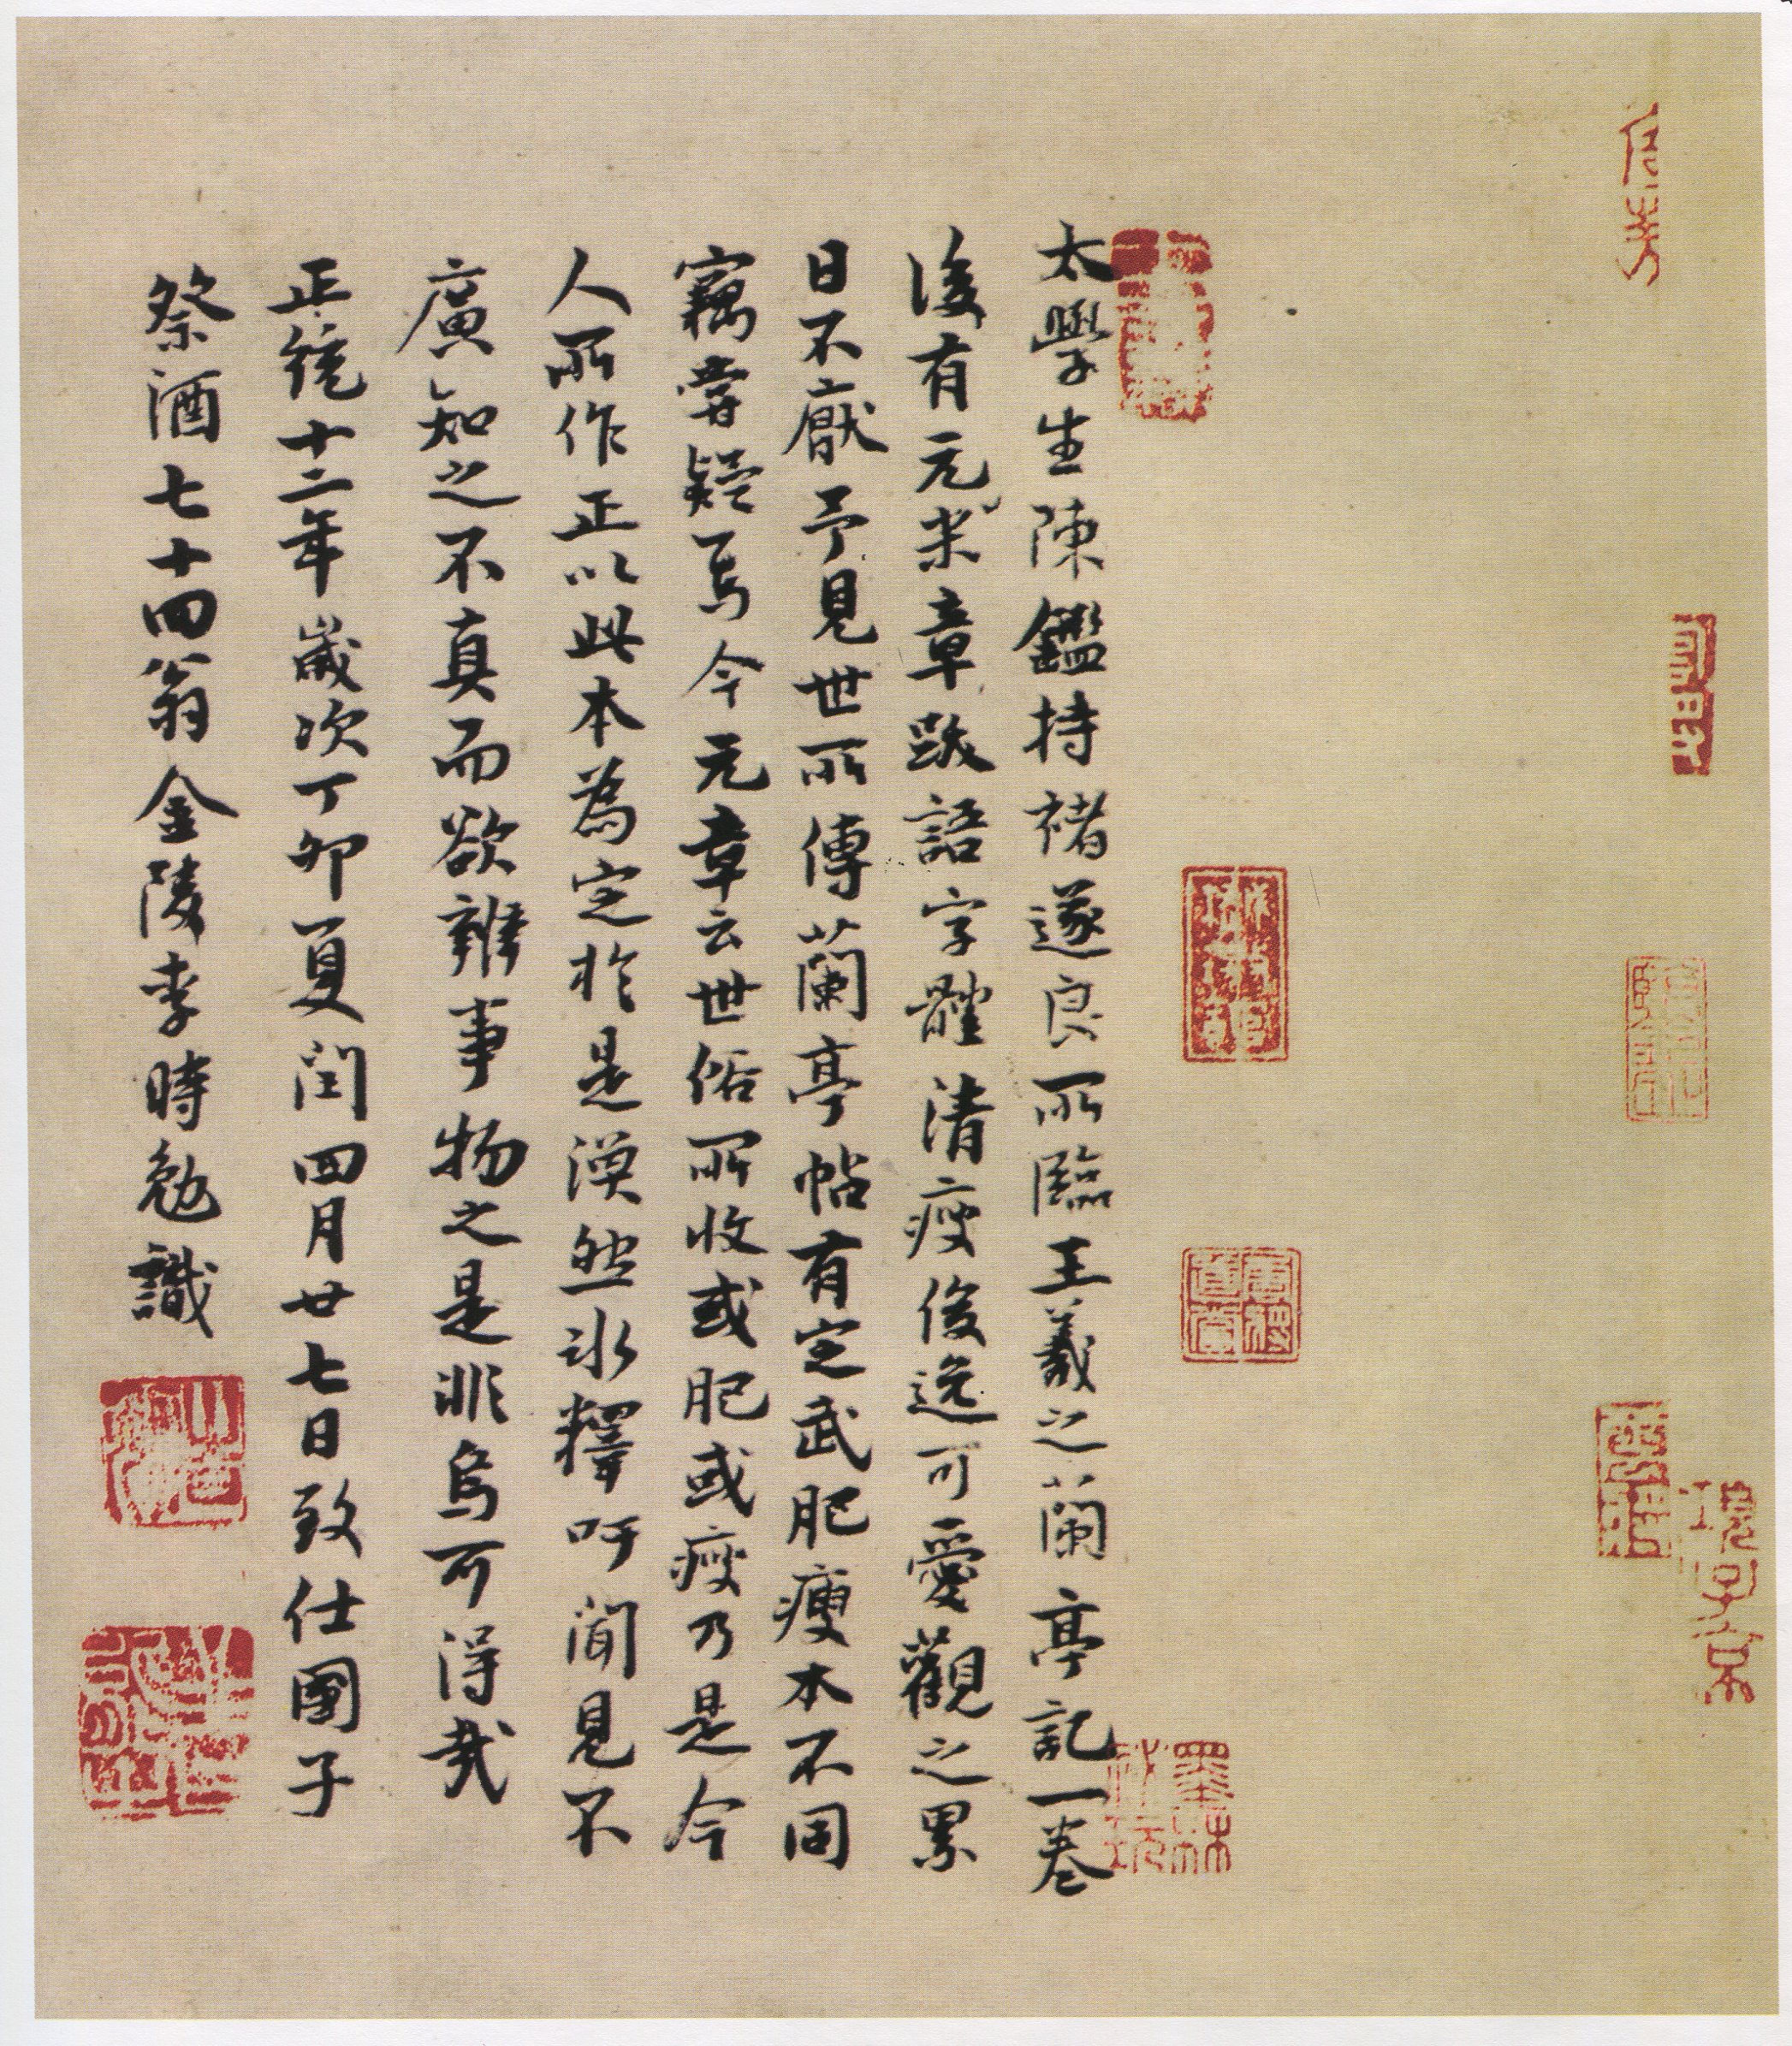 太學生陳鑑持褚遂良所臨王羲之蘭亭記一卷
後有元米章跋語字體清瘦俊逸可愛觀之累
日不厭予見世所傳蘭亭帖有定武肥瘦本不同
竊嘗疑焉今元章云世俗所收或肥或瘦乃是今
人所作正以此本為定於是渙然冰釋吁聞見不
廣知之不真而欲辨事物之是非烏可得哉
正統十二年歲次丁卯夏閏四月廿七日致仕國子
祭酒七十四翁金陵李時勉識
項子京
墨林